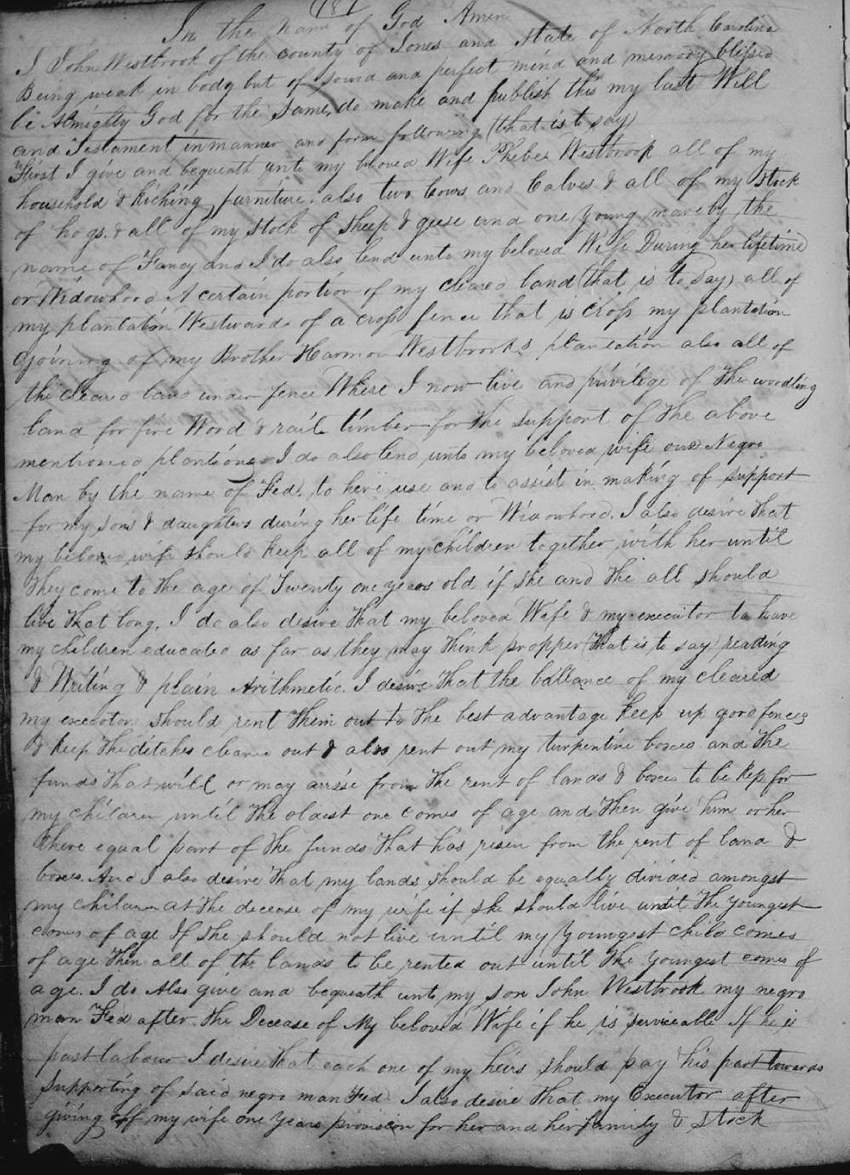 181
In the Name of God Amen
I John Westbrook of the County of Jones and State of North Carolina
Being weak in body but of sound and perfect mind and memory blessed
be Almigtty God for the same, do make and publish this my last Will
and Testament in manner and form following (that is to say)
First I give and bequeath unto my beloved Wife Phebe Westbrook all of my
household & kiching furniture. also two Cows and Calves & all of my Stock
of hogs. & all of my stock of Sheep & geese and one young mare by the
name of Fancy and I do also lend unto my beloved Wife During her lifetime
or Widowhood A certain portion of my cleared land (that is to say) all of
my plantation Westwards of a cross fence that is cross my plantation
ajoining of my Brother Harmon Westbrooks plantation also all of
the cleared land under fence Where I now live and privilege of The woodling
land for fire Wood & rail timber for the support of the above
mentioned plantions I do also lend unto my beloved wife one Negro
Man by the name of Fed, to here use and to assist in making of support
for my sons & daughters during her life time or Widowhood. I also desire that
my beloved wife should keep all of my children together with her until
They come to the age of Twenty one years old if she and the all should
live that long. I do also desire that my beloved Wife & my executor to have
my children educated as far as they may think propper (that is to say) reading
& Writing & plain Arithmetic. I desire That the ballance of my cleared
my executor should rent them out to the best advantage keep up good fences
& keep the ditches cleared out & also rent out my turpentine boxes and the
funds that will or may arise from the rent of lands & boxes to be kep for
my children until the oldest one comes of age and then give him or her
there equal part of the funds that has risen from the rent of land &
boxes. And I also desire that my lands should be equally divided amongst
my children at the decease of my wife if she should live until the youngest
comes of age If she should not live until my youngest child comes
of age then all of the lands to be rented out until the youngest comes of
age. I do Also give and bequeath unto my son John Westbrook my negro
man Fed after the Decease of My beloved Wife if he is serviceable If he is
past labour I desire that each one of my heirs should pay his part towards
supporting of said negro man Fed. I also desire that my Executor after
giving off my wife one years provision for her and her family & stock